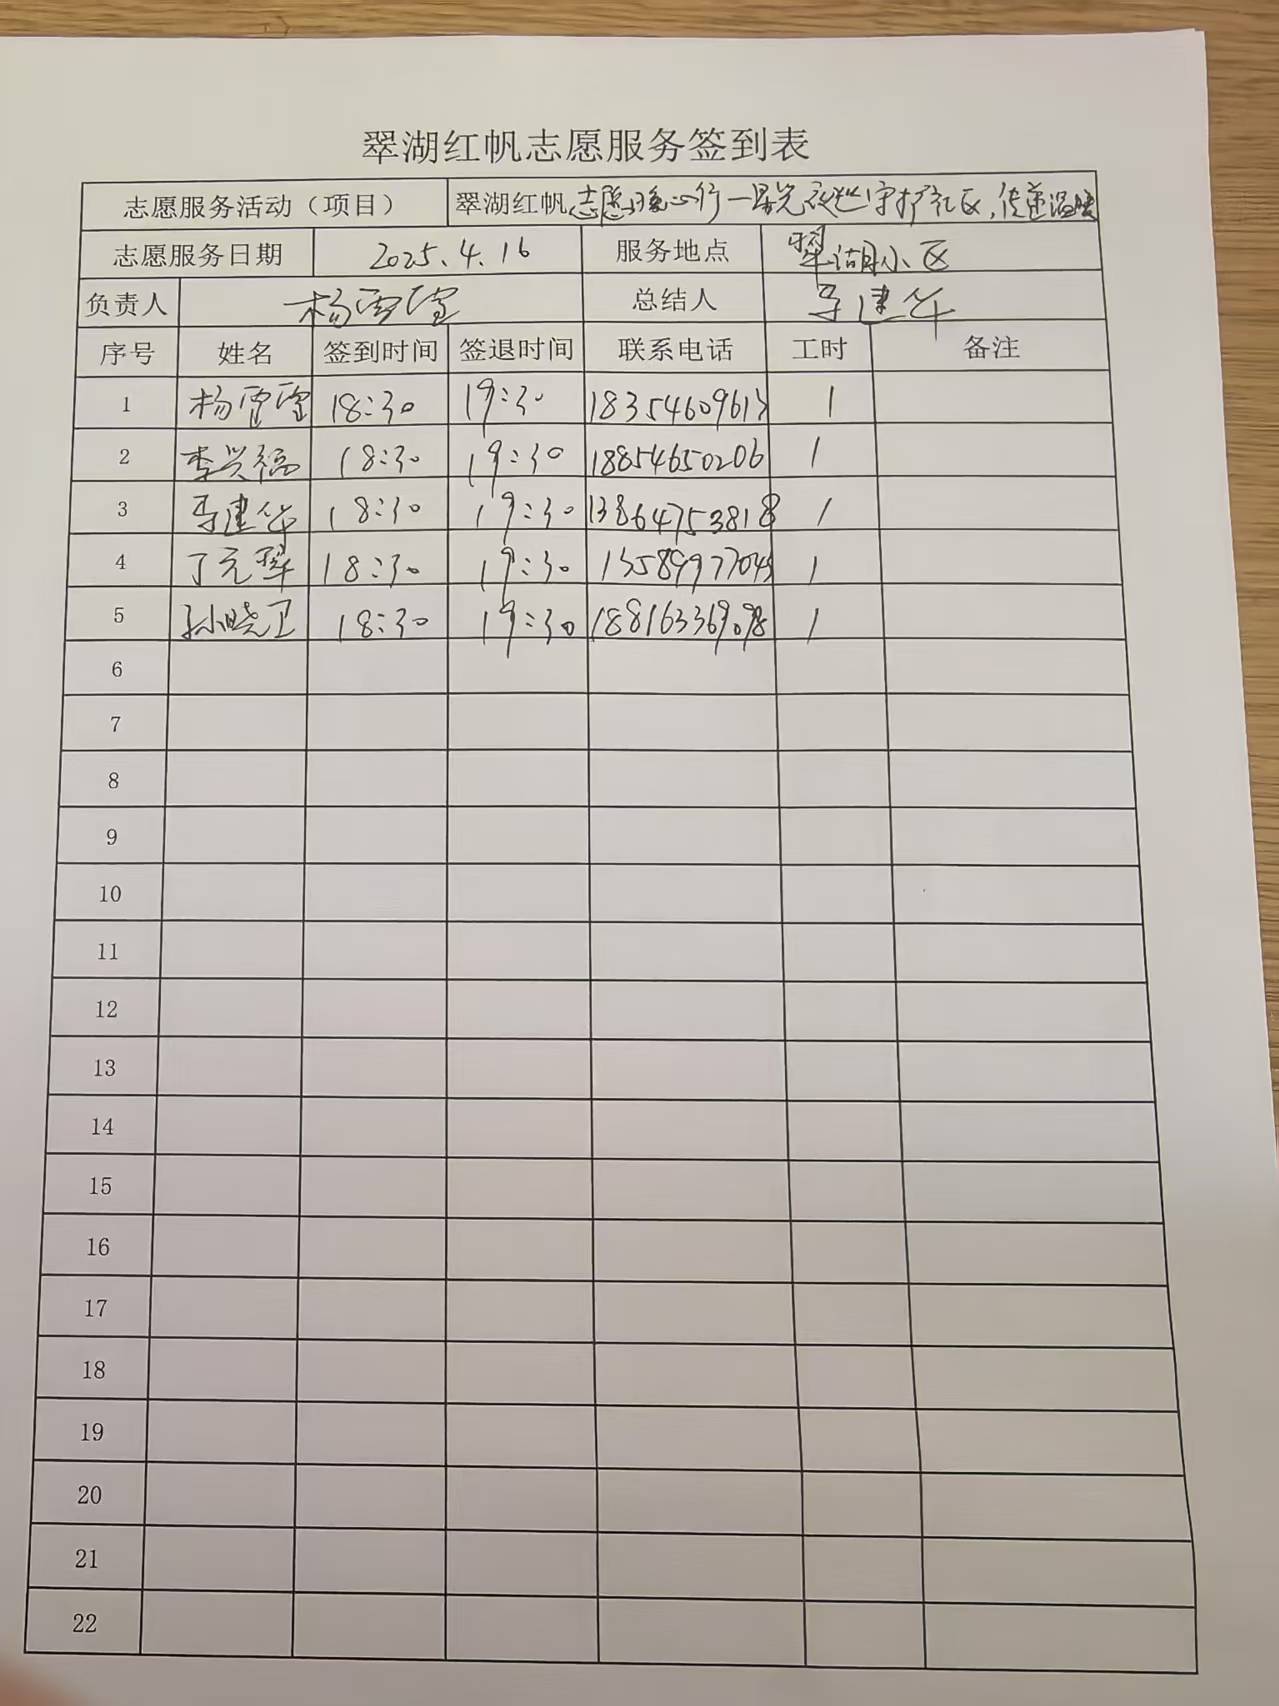 翠湖红帆志愿服务签到表
志愿服务活动（项目） 翠湖红帆志愿暖心行一星光夜巡守护社区，传递温暖
志愿服务日期 2025.4.16 服务地点 翠湖小区
负责人 杨雪莹 总结人 马建华
序号 姓名 签到时间 签退时间 联系电话 工时 备注
1 杨雪莹 18:30 19:30 1
2 李兴福 18:30 19:30 18854650206 1
3 马建华 18:30 19:30 13864753818 1
4 丁元翠 18:30 19:30 1
5 孙晓卫 18:30 19:30 1
6
7
8
9
10
11
12
13
14
15
16
17
18
19
20
21
22